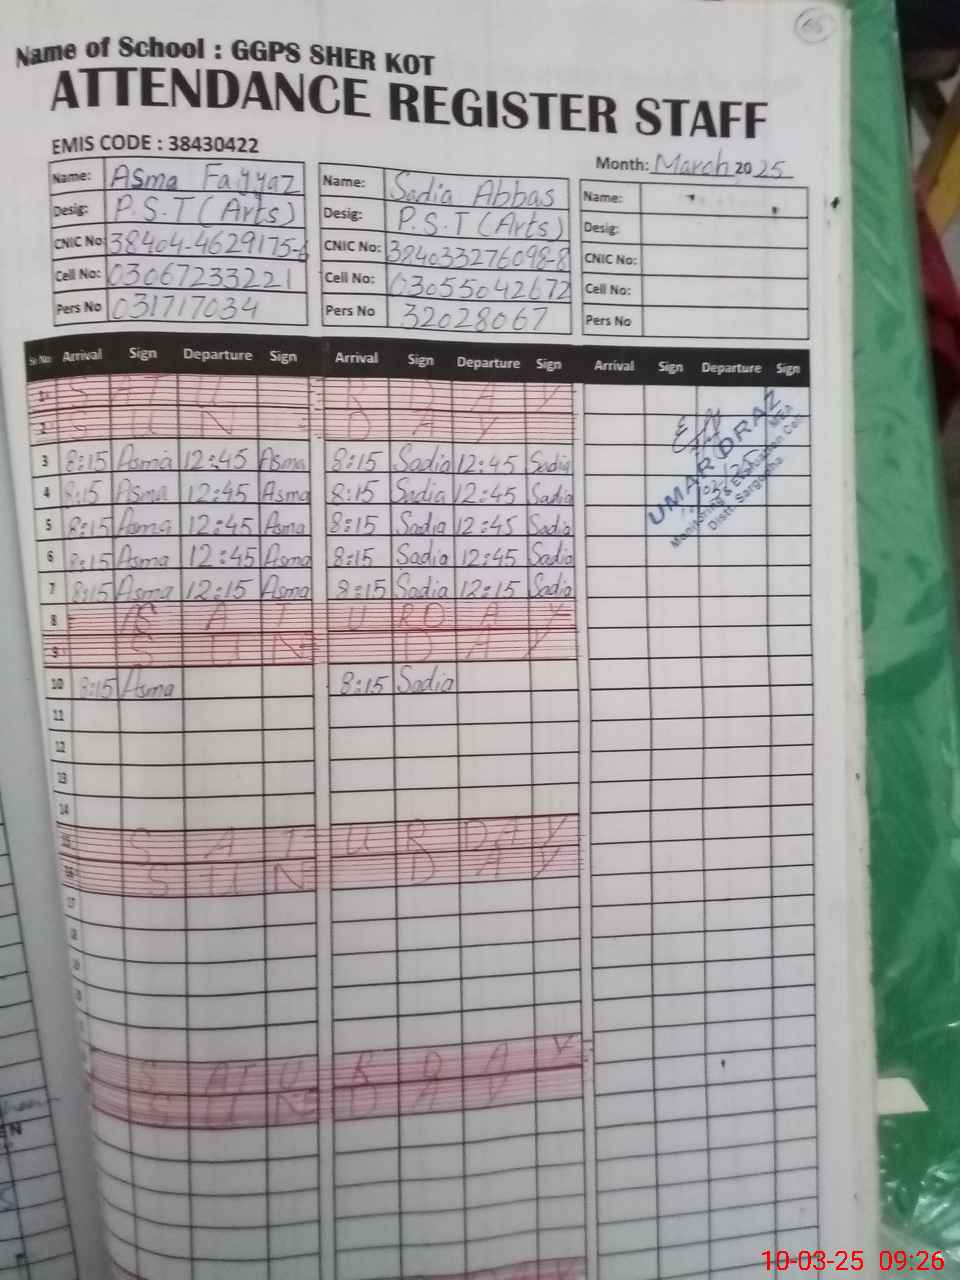 66
Name of School : GGPS SHER KOT
ATTENDANCE REGISTER STAFF
EMIS CODE : 38430422
Month: March 2025
Name: Asma Fayyaz
Desig: P.S.T (Arts)
CNIC No: 38404-4629175-6
Cell No: 03067233221
Pers No 031717034
Name: Sadia Abbas
Desig: P.S.T (Arts)
CNIC No: 384033276098-8
Cell No: 03055042672
Pers No 32028067
Name:
Desig:
CNIC No:
Cell No:
Pers No
Sr No: Arrival Sign Departure Sign Arrival Sign Departure Sign Arrival Sign Departure Sign
1 SATURDAY
2 SUNDAY
3 8:15 Asma 12:45 Asma 8:15 Sadia 12:45 Sadia
4 8:15 Asma 12:45 Asma 8:15 Sadia 12:45 Sadia
5 8:15 Asma 12:45 Asma 8:15 Sadia 12:45 Sadia
6 8:15 Asma 12:45 Asma 8:15 Sadia 12:45 Sadia
7 8:15 Asma 12:15 Asma 8:15 Sadia 12:15 Sadia
8 SATURDAY
9 SUNDAY
10 8:15 Asma 8:15 Sadia
11
12
13
14
15 SATURDAY
16 SUNDAY
17
18
19
SATURDAY
SUNDAY
UMAR DRAZ
MEA
Monitoring & Evaluation Cell
Distt. Sargodha
10-03-25 09:26